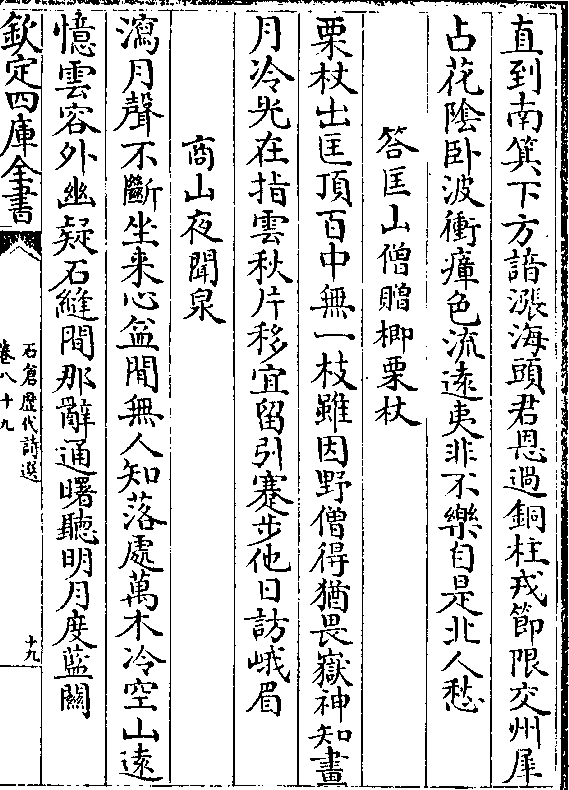 直到南箕下方諳漲海頭君恩過銅柱戎節限交州犀
占花陰臥波衝瘴色流遠夷非不樂自是北人愁
答匡山僧贈楖栗杖
栗杖出匡頂百中無一枝雖因野僧得猶畏嶽神知畫
月冷光在指雲秋片移宜留引蹇步他日訪峨眉
商山夜聞泉
瀉月聲不斷坐来心益閒無人知落處萬木冷空山逺
憶雲容外幽疑石縫間那辭通曙聽明月度藍關
欽定四庫全書
石倉歷代詩選
卷八十九
十九